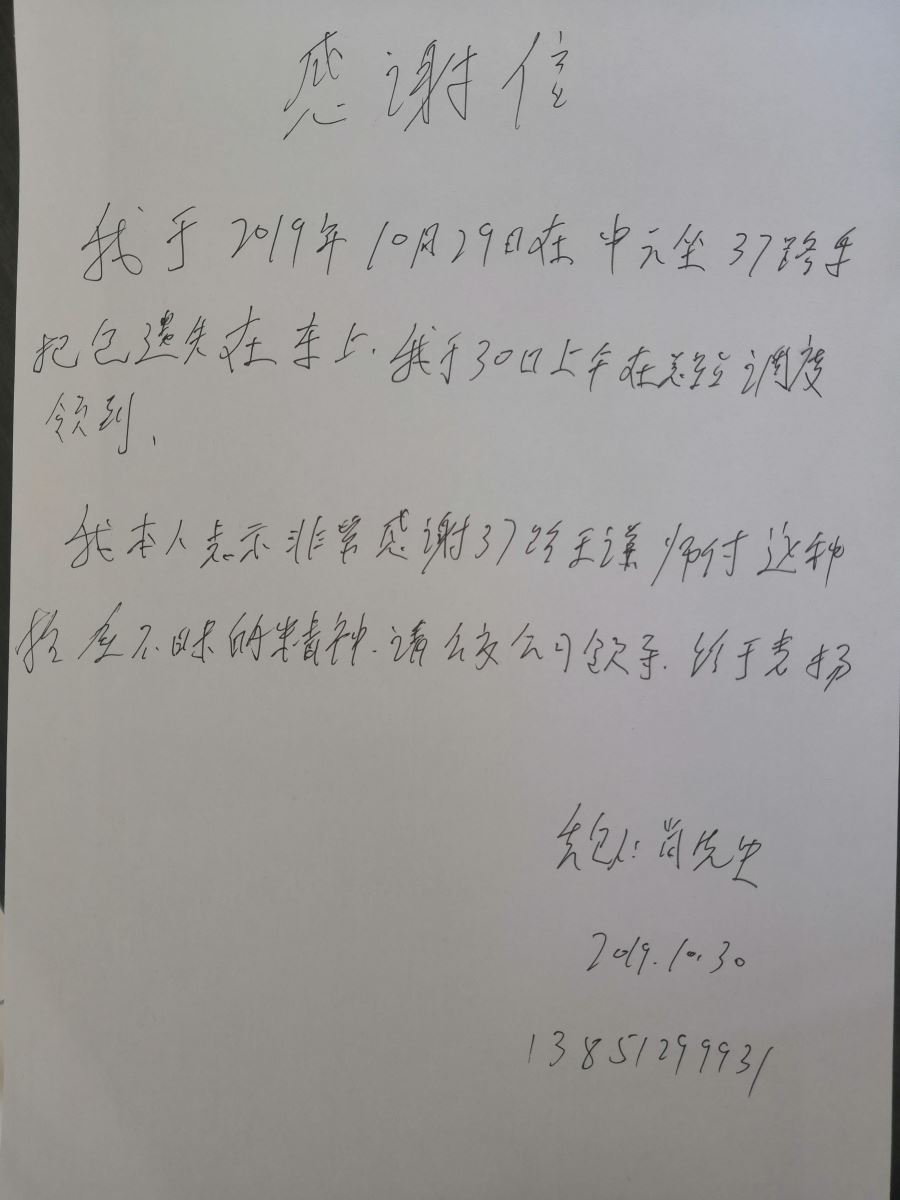 感谢信
我于2019年10月29日在中元坐37路车
把包遗失在车上.我于30日上午在总站调度
领到、
我本人表示非常感谢37路王谨师付这种
拾金不昧的精神.请公交公司领导.给于表扬
失包人:肖先生
2019.10.30
13851299931